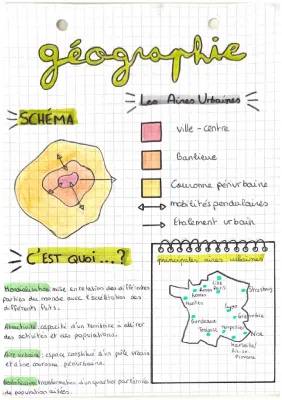 géographie
Les Aires Urbaines
SCHÉMA
ville - centre
Banlieue
Couronne périurbaine
mobilités pendulaires
Étalement urbain
C'EST QUOI...?
Mondialisation mise en relation des différentes
parties du monde avec l'accélération des
différents flux.
Attractivité capacité d'un territoire à attirer
des activités et des populations.
Aire urbaine: espace constitué d'un pôle urbain
et d'une couronne périurbaine.
transformation d'un quartier
de population aisées.
principales aires urbaines
Lille
Paris
Rouen
Rennes
Strasbourg
Nantes
Lyon
Grenoble
Bordeaux
Toulouse
Montpellier
Nice
Marseille/
Aix-en-
Provence